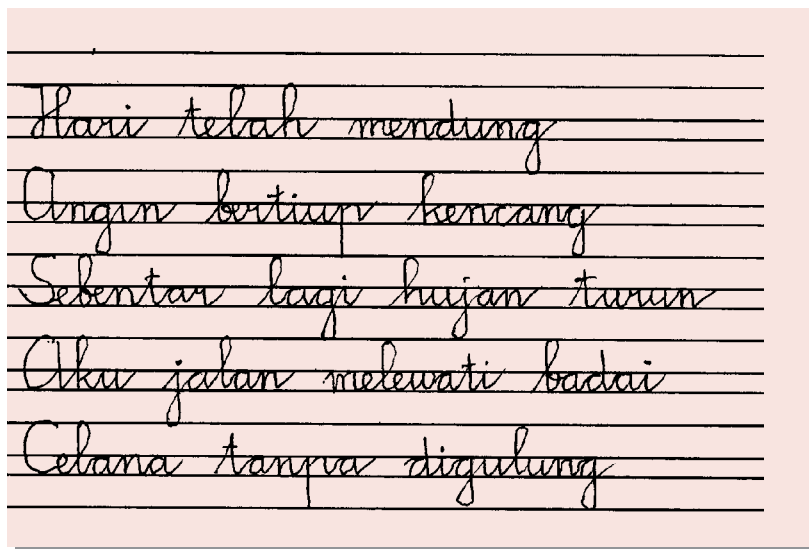 Hari telah mendung
Angin bertiup kencang
Sebentar lagi hujan turun
Aku jalan melewati badai
Celana tanpa digulung